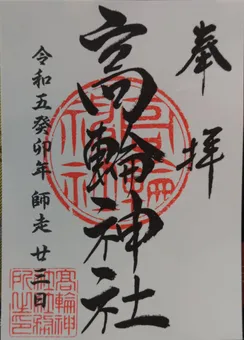 奉拝
高輪神社
令和五癸卯年 師走 廿三日
高輪神社
髙輪神
社社務
所之印